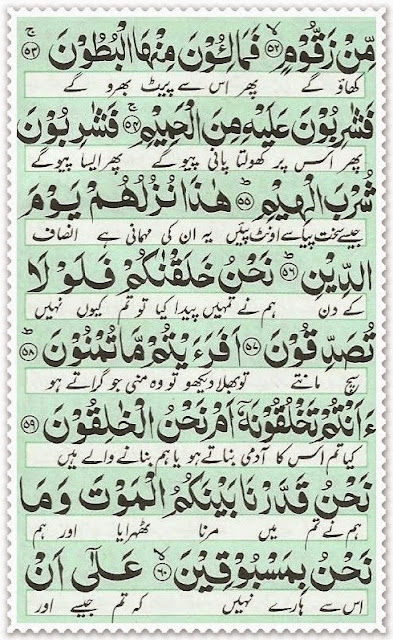 مِّنْ زَقُّوْمٍ ۙ﴿۵۲﴾ فَمَالِـُٔوْنَ مِنْهَا الْبُطُوْنَ ۚ﴿۵۳﴾
کھاؤ گے پھر اس سے پیٹ بھرو گے
فَشٰرِبُوْنَ عَلَيْهِ مِنَ الْحَمِيْمِ ۚ﴿۵۴﴾ فَشٰرِبُوْنَ
پھر اس پر کھولتا پانی پیو گے پھر ایسا پیو گے
شُرْبَ الْهِيْمِ ؕ﴿۵۵﴾ هٰذَا نُزُلُهُمْ يَوْمَ
جیسے سخت پیاسے اونٹ پئیں یہ ان کی مہمانی ہے انصاف
الدِّيْنِ ؕ﴿۵۶﴾ نَحْنُ خَلَقْنٰكُمْ فَلَوْ لَا
کے دن ہم نے تمہیں پیدا کیا تو تم کیوں نہیں
تُصَدِّقُوْنَ ﴿۵۷﴾ اَفَرَءَيْتُمْ مَّا تُمْنُوْنَ ؕ﴿۵۸﴾
سچ مانتے تو بھلا دیکھو تو وہ منی جو گراتے ہو
ءَاَنْتُمْ تَخْلُقُوْنَهٗۤ اَمْ نَحْنُ الْخٰلِقُوْنَ ﴿۵۹﴾
کیا تم اس کا آدمی بناتے ہو یا ہم بنانے والے ہیں
نَحْنُ قَدَّرْنَا بَيْنَكُمُ الْمَوْتَ وَمَا
ہم نے تم میں مرنا ٹھہرایا اور ہم
نَحْنُ بِمَسْبُوْقِيْنَ ۙ﴿۶۰﴾ عَلٰۤى اَنْ
اس سے ہارے نہیں کہ تم جیسے اور